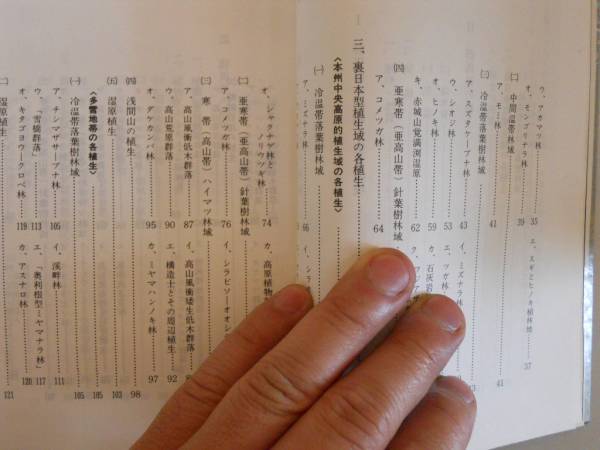 ウ、アカマツ林……35
エ、スギとヒノキ植林地……37
オ、モンゴリナラ林……39
(二) 中間温帯林域……41
ア、モミ林……41
(三) 冷温帯落葉樹林域
ア、スズタケ―ブナ林……43
イ、ミズナラ林
ウ、シオジ林……53
エ、ツガ林
オ、ヒノキ林……59
カ、石灰岩
キ、赤城山覚満渕湿原……62
(四) 亜寒帯(亜高山帯)針葉樹林域
ア、コメツガ林……64
三、裏日本型植生域の各植生
〈本州中央高原的植生域の各植生〉
(一) 冷温帯落葉樹林域
ア、ミズナラ林……66
オ、シャクナゲ林とノリウツギ林……74
カ、高原植物
(二) 亜寒帯(亜高山帯)針葉樹林域
ア、コメツガ林……76
イ、シラビソ―オオシ
(三) 寒帯(高山帯)ハイマツ林域
ア、高山風衝低木群落……87
イ、高山風衝矮生低木群落
ウ、高山荒原群落……90
エ、構造土とその周辺植生……92
オ、ダケカンバ林……95
カ、ミヤマハンノキ林……97
(四) 浅間山の植生……98
(五) 湿原植生……103
〈多雪地帯の各植生〉……105
(一) 冷温帯落葉樹林域……105
ア、チシマザサ―ブナ林……105
イ、渓畔林……111
ウ、雪橋群落」……113
エ、「奥利根型ミヤマナラ林」……117
オ、キタゴヨウ―クロベ林……119
カ、アスナロ林……120
湿原植生……121